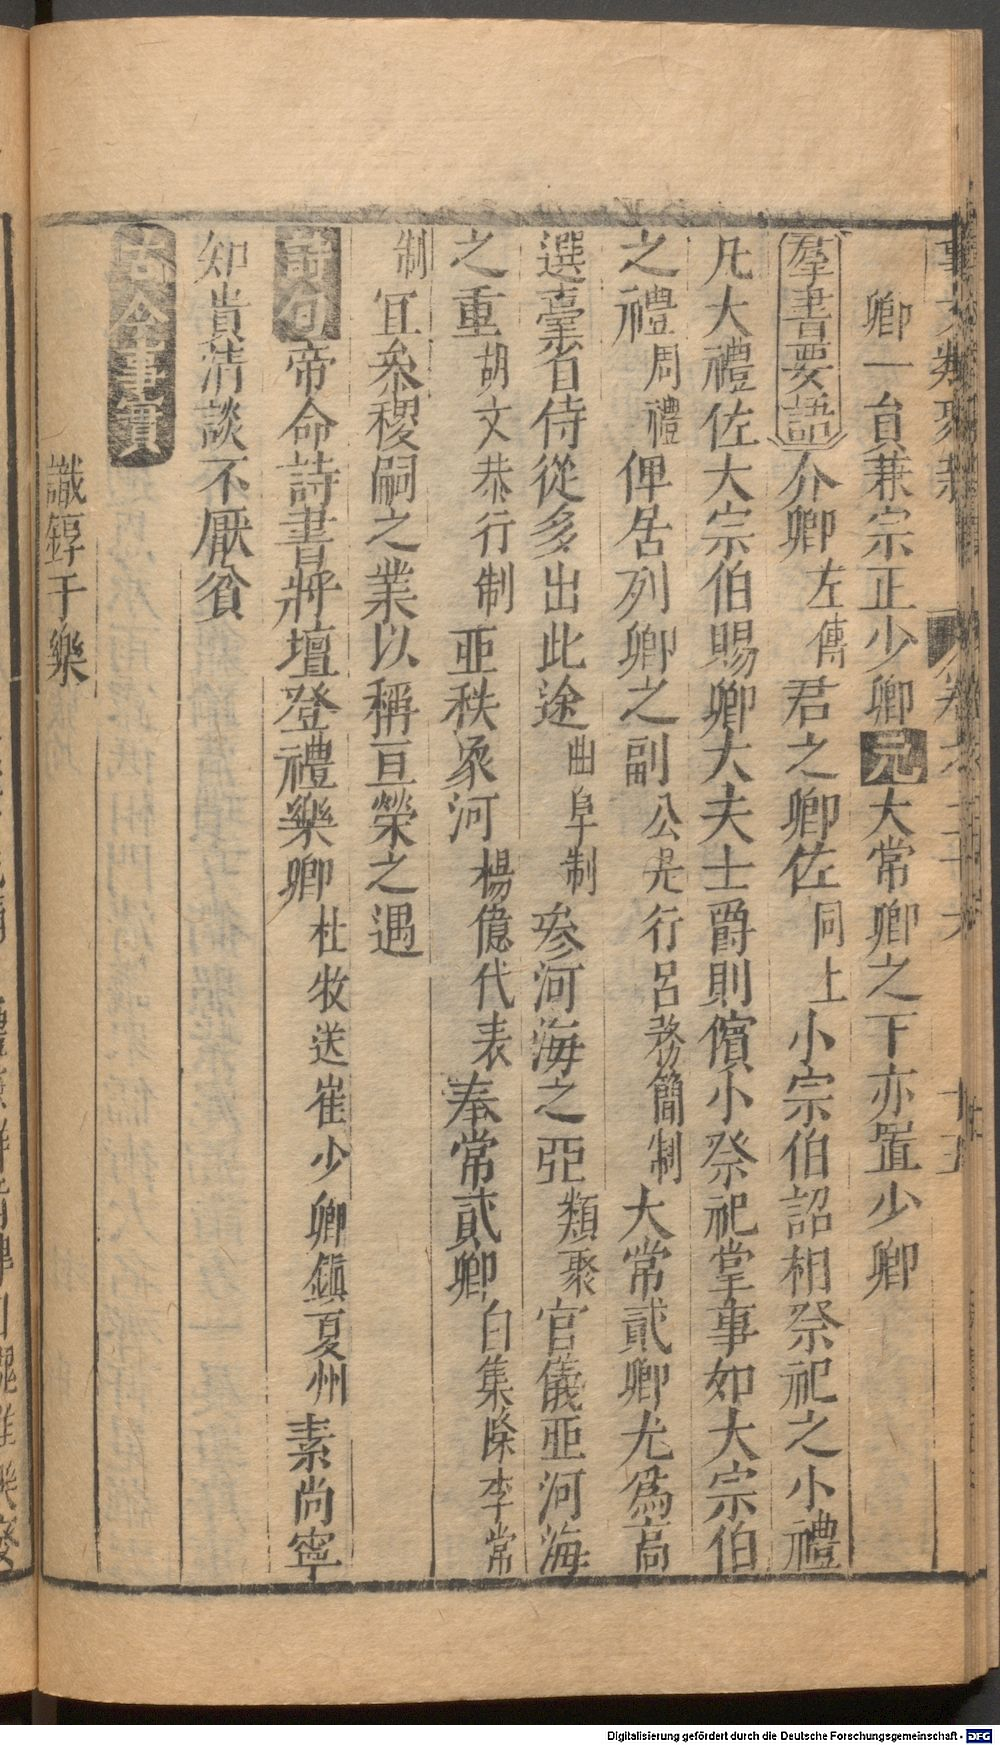 卿一貟兼宗正少卿元大常卿之下亦置少卿
羣書要語介卿左傳君之卿佐同上小宗伯詔相祭祀之小禮
凡大禮佐大宗伯賜卿大夫士爵則儐小祭祀掌事如大宗伯
之禮周禮俾居列卿之副公是行呂務簡制大常貳卿尤爲高
選臺省侍從多出此途曲阜制參河海之亞類聚官儀亞河海
之重胡文恭行制亞秩象河楊億代表奉常貳卿白集除李常
制冝叅稷嗣之業以稱亘榮之遇
詩句帝命詩書將壇登禮樂卿杜牧送崔少卿鎮夏州素尚寧
知貴清談不厭貧
古今事實
識錞于樂
Digitalisierung gefördert durch die Deutsche Forschungsgemeinschaft - DFG